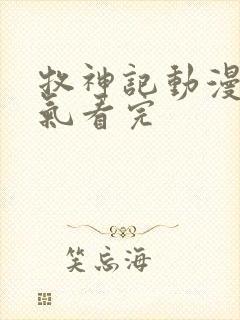 牧神記動漫
氣看完
笑忘海